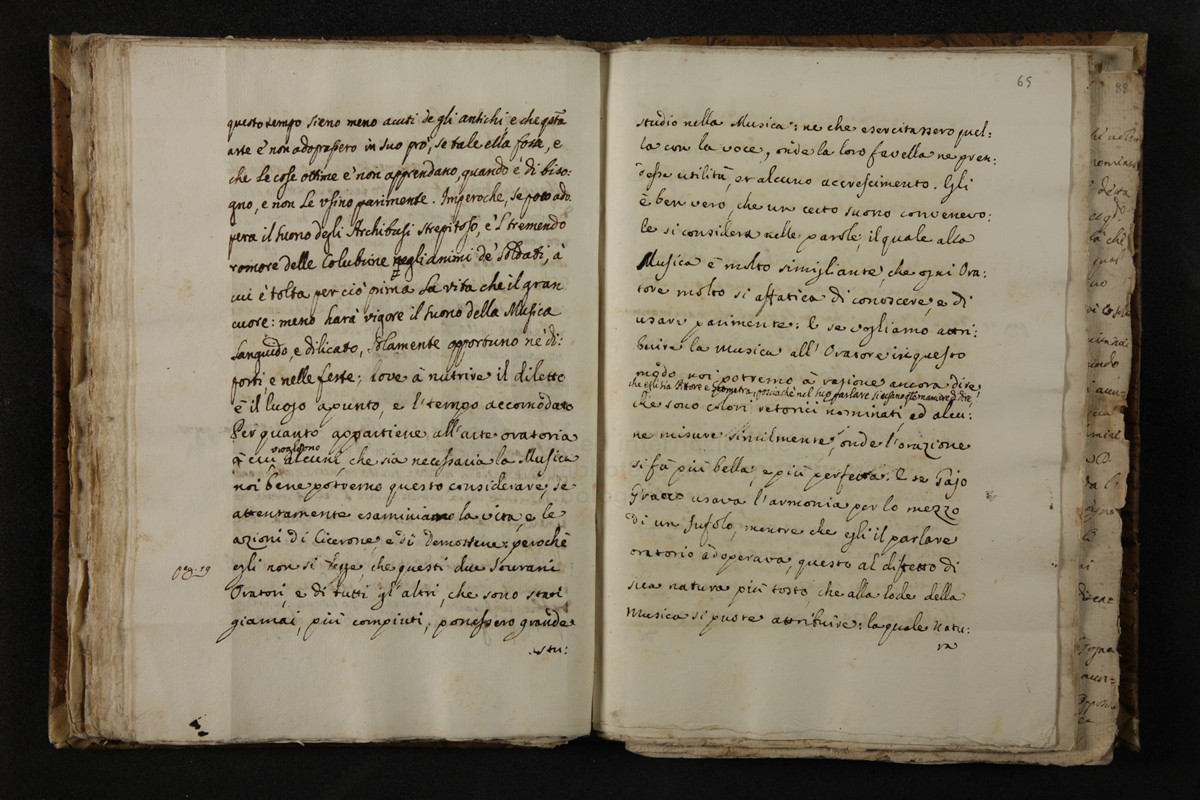 questo tempo sieno meno acuti de gli antichi, e che qstã
arte e' non adoprassero in suo prò, se tale ella fosse, e
che le cose ottime e' non apprendano, quando è di biso:
gno, e non le usino parimente. Imperoche, se poco ado:
pera il suono degli Archibusi strepitoso, e 'l tremendo
romore delle Colubrine negli animi de' Soldati, à
cui è tolta per ciò prima la vita che il gran
cuore: meno harà vigore il suono della Musica
languido, e dilicato, solamente opportuno ne' di:
porti e nelle feste; dove à nutrire il diletto
è il luogo apunto, e l' tempo accomodato
Per quanto appartiene all' arte oratoria
vogliono
à cui alcuni che sia necessaria la Musica
noi bene potremo questo considerare, se
attentamente esaminiamo la vita e le
azioni di Cicerone, e di Demostene: perochè
pag. 19
egli non si legge, che questi due sourani
Oratori, e di tutti gl' altri, che sono stati
giamai, più compiuti, ponessero grande
stu:
65
studio nella Musica: ne che esercitassero quel:
la con la voce, onde la loro favella ne pren:
desse utilità, et alcuno accrescimento. Gli
è ben vero, che un certo suono convenevo:
le si considera nelle parole, il quale alla
Musica è molto simigliante, che ogni Ora:
tore molto si affatica di conoscere, e di
usare parimente: E se vogliamo attri:
buire la Musica all' Oratore in questo
modo noi potremo à ragione ancora dire,
che egli sia Pittore e Geometra, poiche nel suo parlare si usano maniere di dire,
che sono colori retorici nominati, ed alcu:
ne misure similmente, onde l'orazione
si fà più bella, e più perfetta. E se Gajo
Gracco usava l'armonia per lo mezzo
di un Zufolo, mentre che egli il parlare
oratorio adoperava, questo al difetto di
sua natura più tosto, che alla lode della
Musica si puote attribuire: la quale natu:
ra